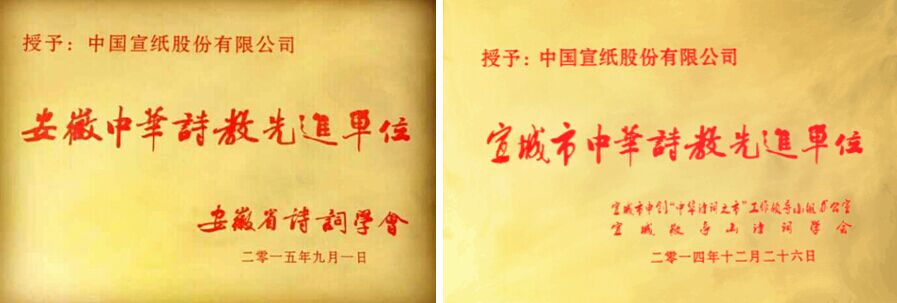 授予：中国宣纸股份有限公司
安徽中華詩教先進單位
安徽省诗詞學會
二零一五年九月一日
授予：中国宣纸股份有限公司
宣城市中華詩教先進單位
宣城市申创“中华诗词之市”工作领导小组办公室
宣城敬亭山诗词学会
二零一四年十二月二十六日